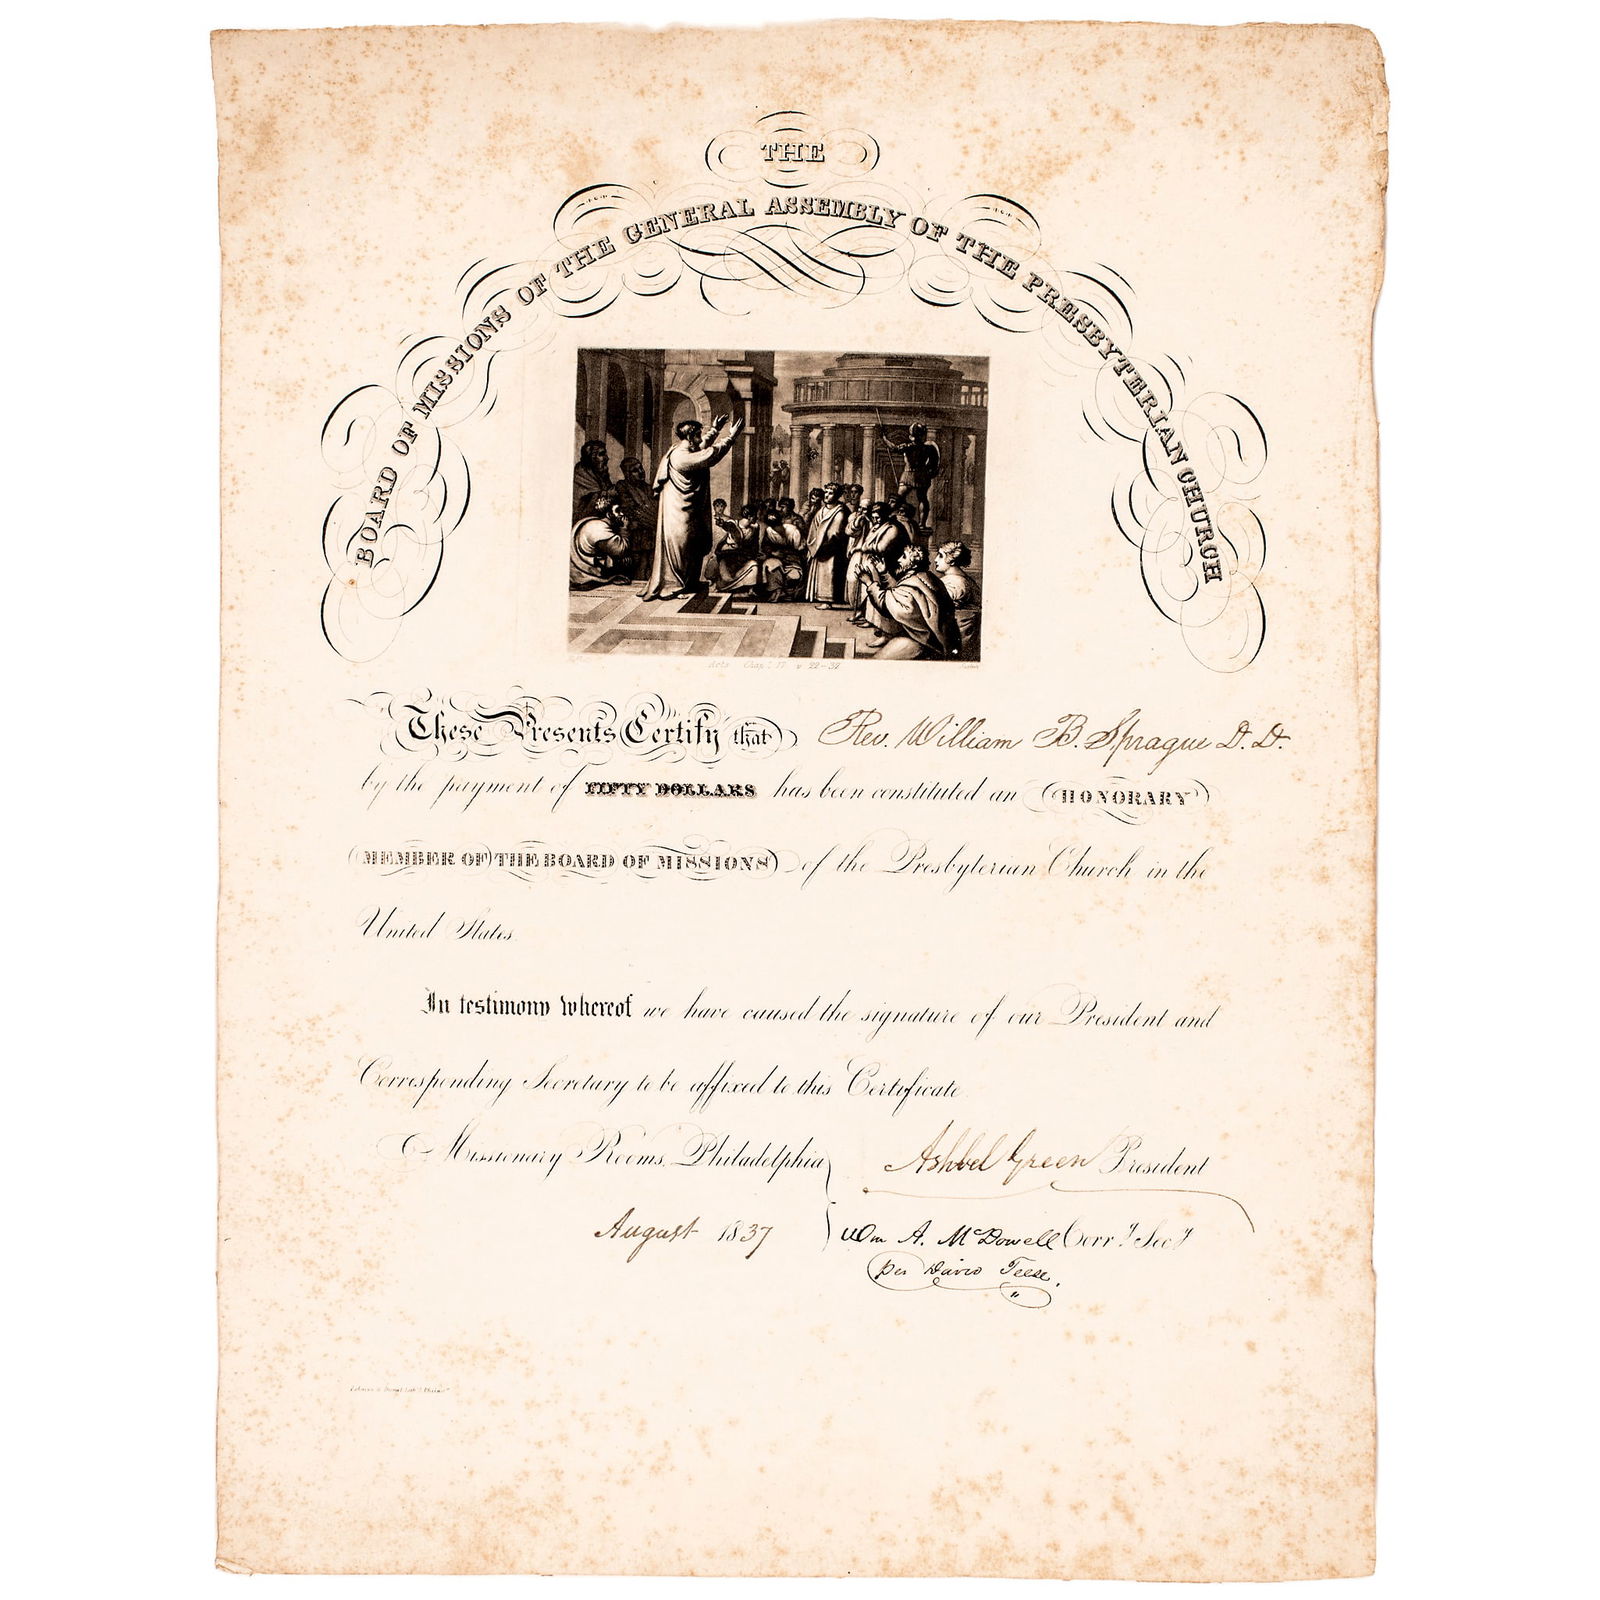 THE
BOARD OF MISSIONS OF THE GENERAL ASSEMBLY OF THE PRESBYTERIAN CHURCH
Acts Chap. 17 v 22-32
These Presents Certify that Rev. William B. Sprague D. D.
by the payment of FIFTY DOLLARS has been constituted an HONORARY
MEMBER OF THE BOARD OF MISSIONS of the Presbyterian Church in the
United States.
In testimony whereof we have caused the signature of our President and
Corresponding Secretary to be affixed to this Certificate
Missionary Rooms, Philadelphia
August 1837
Ashbel Green President
Wm A. McDowell Corry Secy
per David Teese.